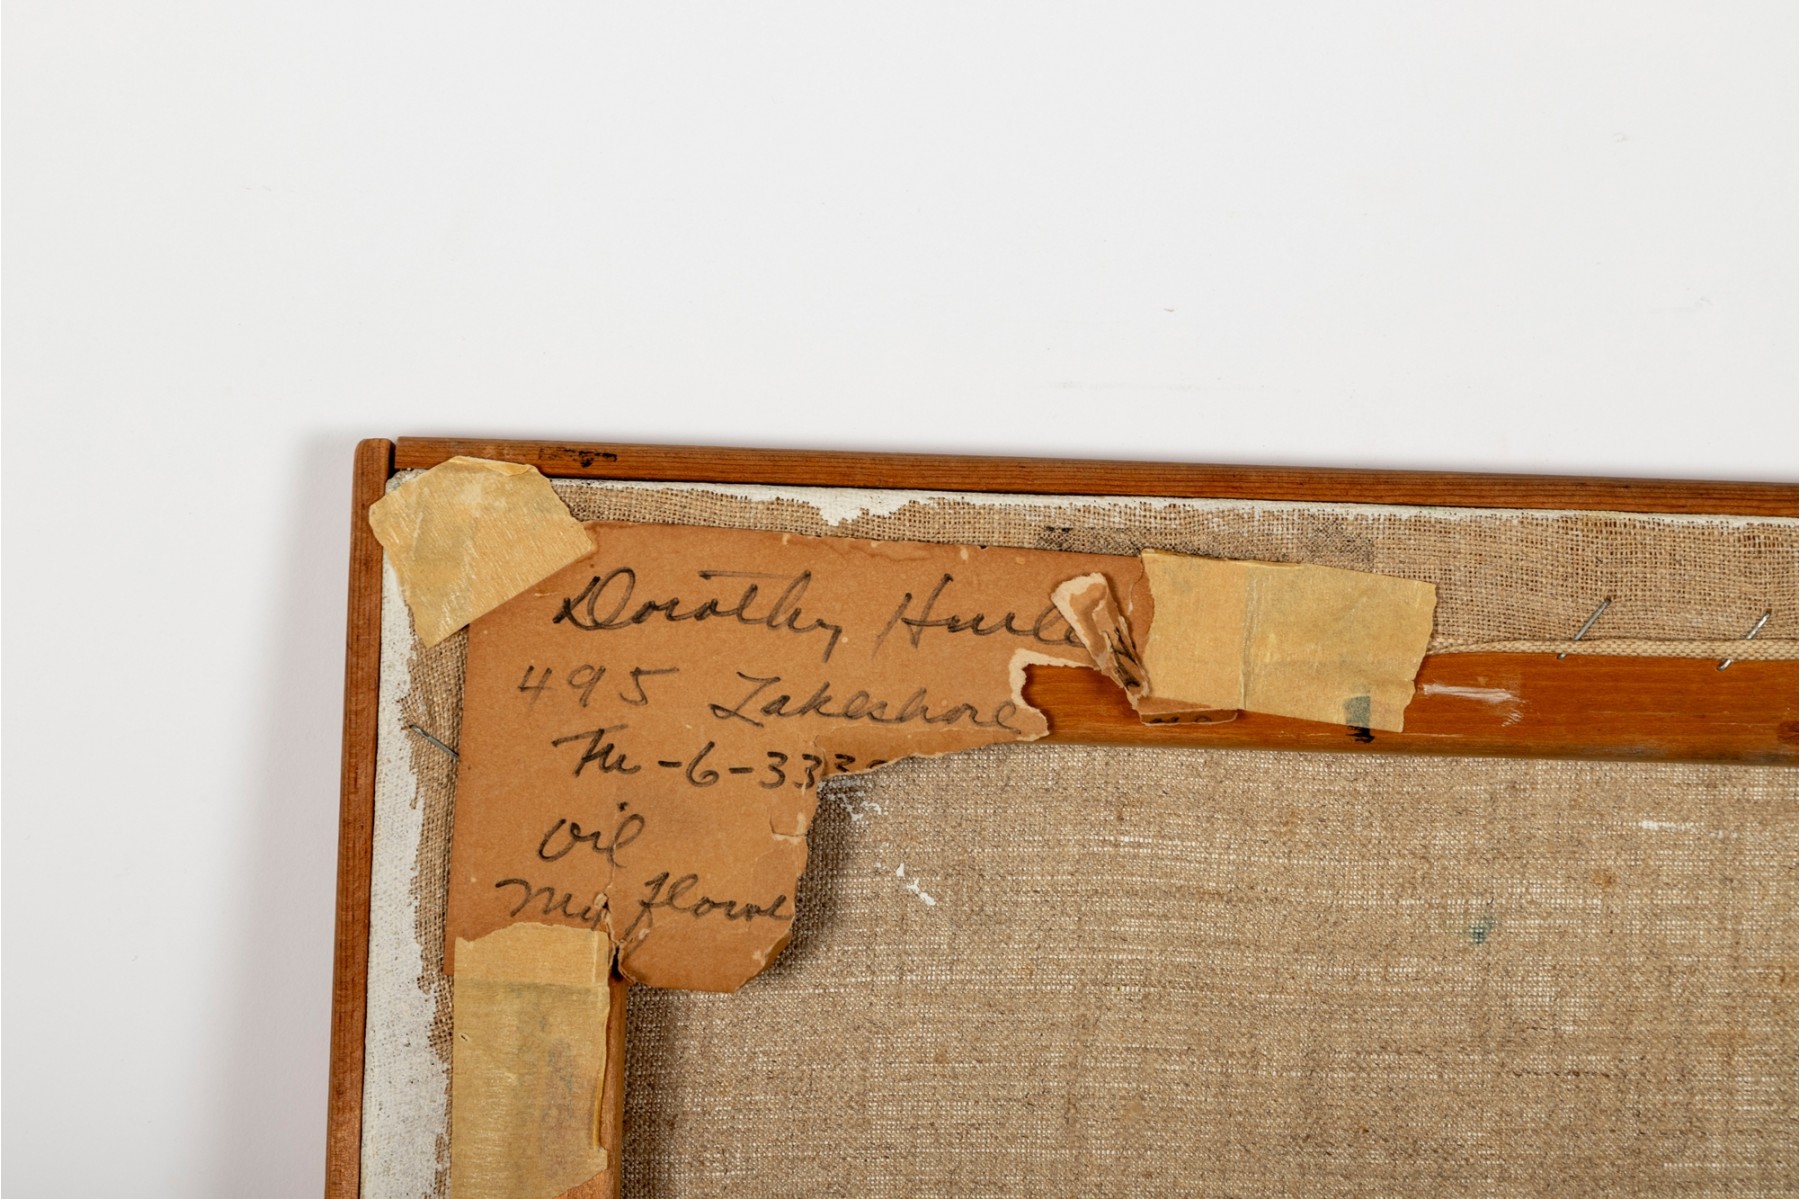 Dorothy Hurle
495 Lakeshore
-6-333
oil
My Flowe